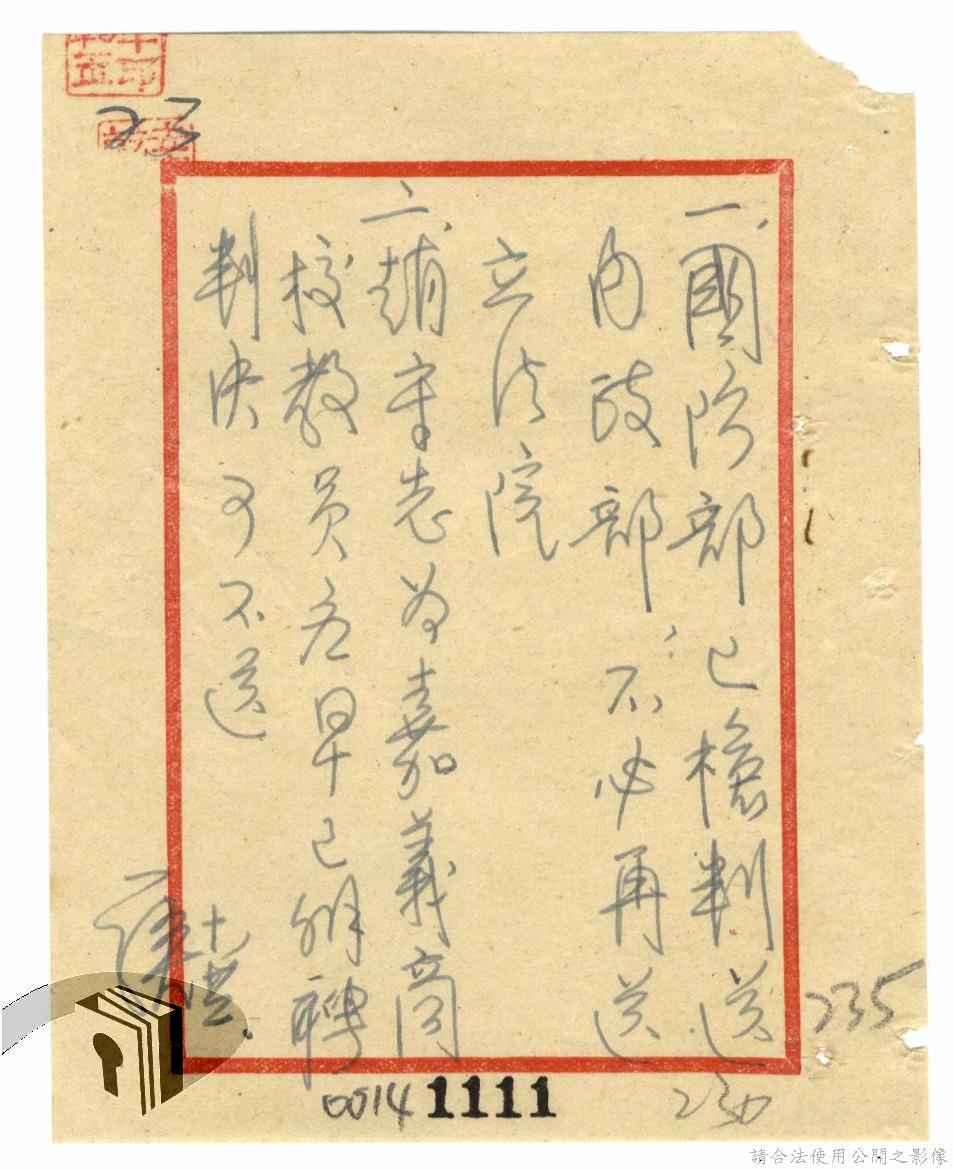 一、國防部已檢判送
內政部，不必再送
立法院
二、趙守志為嘉義商
校教員如早已解聘
判決可不送
十七
23
235
230
0014 1111
請合法使用公開之影像